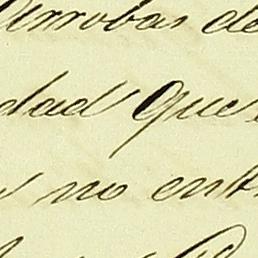 Arrobas de
dad que
no ent